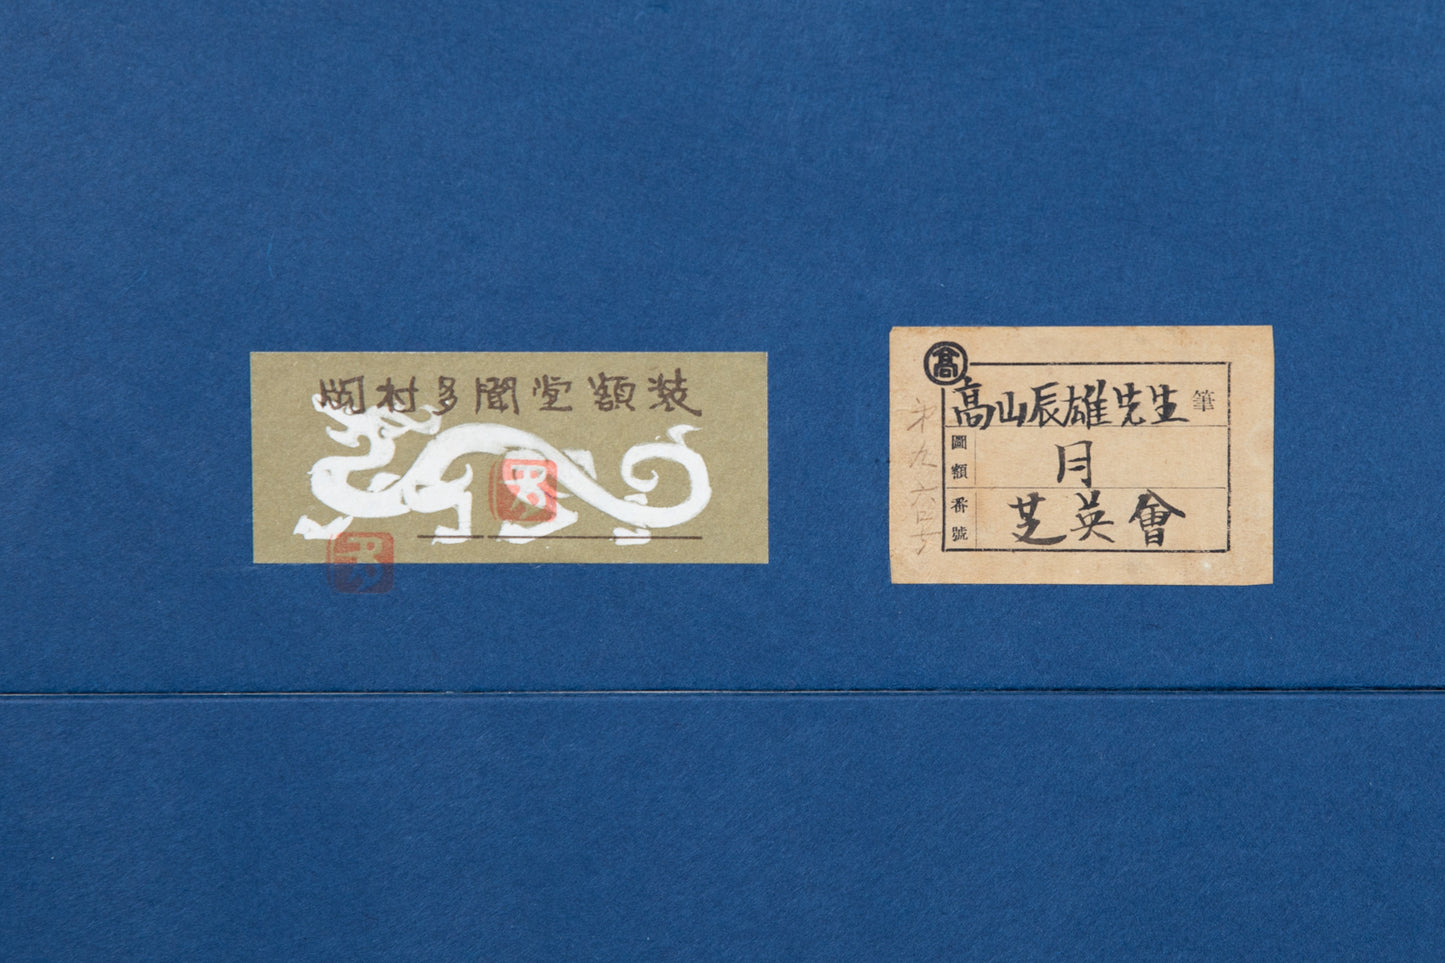 岡村多聞堂額装
高
高山辰雄先生 筆
圖額 月
番號 芝英會